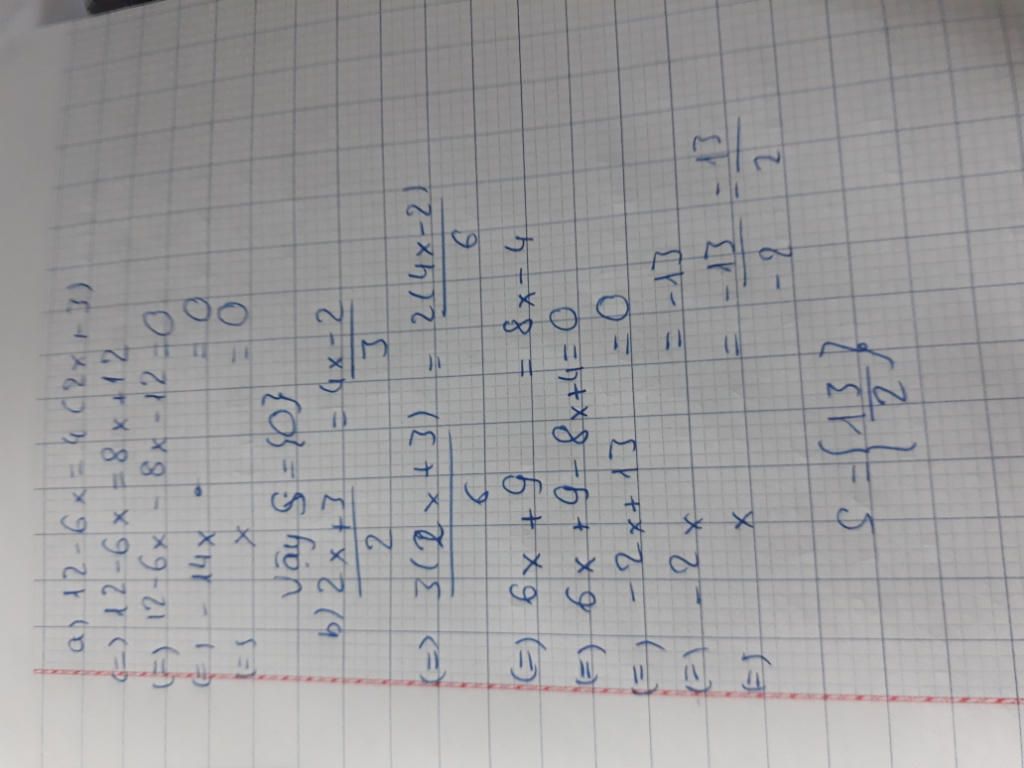 a) 12 - 6x = 4(2x + 3)
(=) 12 - 6x = 8x + 12
(=) 12 - 6x - 8x - 12 = 0
(=) - 14x = 0
(=) x = 0
Vậy S = {0}
b) \frac{2x + 3}{2} = \frac{4x - 2}{3}
(=) \frac{3(2x + 3)}{6} = \frac{2(4x - 2)}{6}
(=) 6x + 9 = 8x - 4
(=) 6x + 9 - 8x + 4 = 0
(=) - 2x + 13 = 0
(=) - 2x = - 13
(=) x = \frac{-13}{-2} = \frac{13}{2}
S = {\frac{13}{2}}